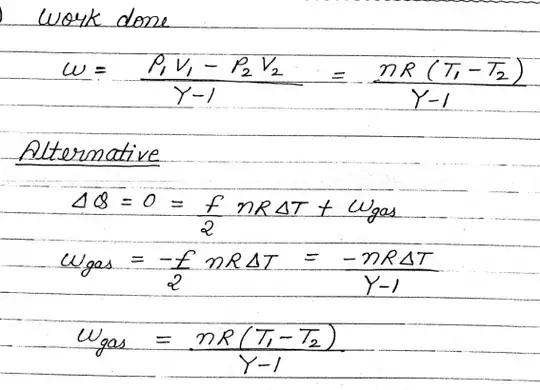 ) Work done
W = P₁V₁ - P₂V₂ / γ-1 = nR(T₁-T₂) / γ-1
Alternative
ΔQ = 0 = f/2 nRΔT + Wgas
Wgas = -f/2 nRΔT = -nRΔT / γ-1
Wgas = nR(T₁-T₂) / γ-1